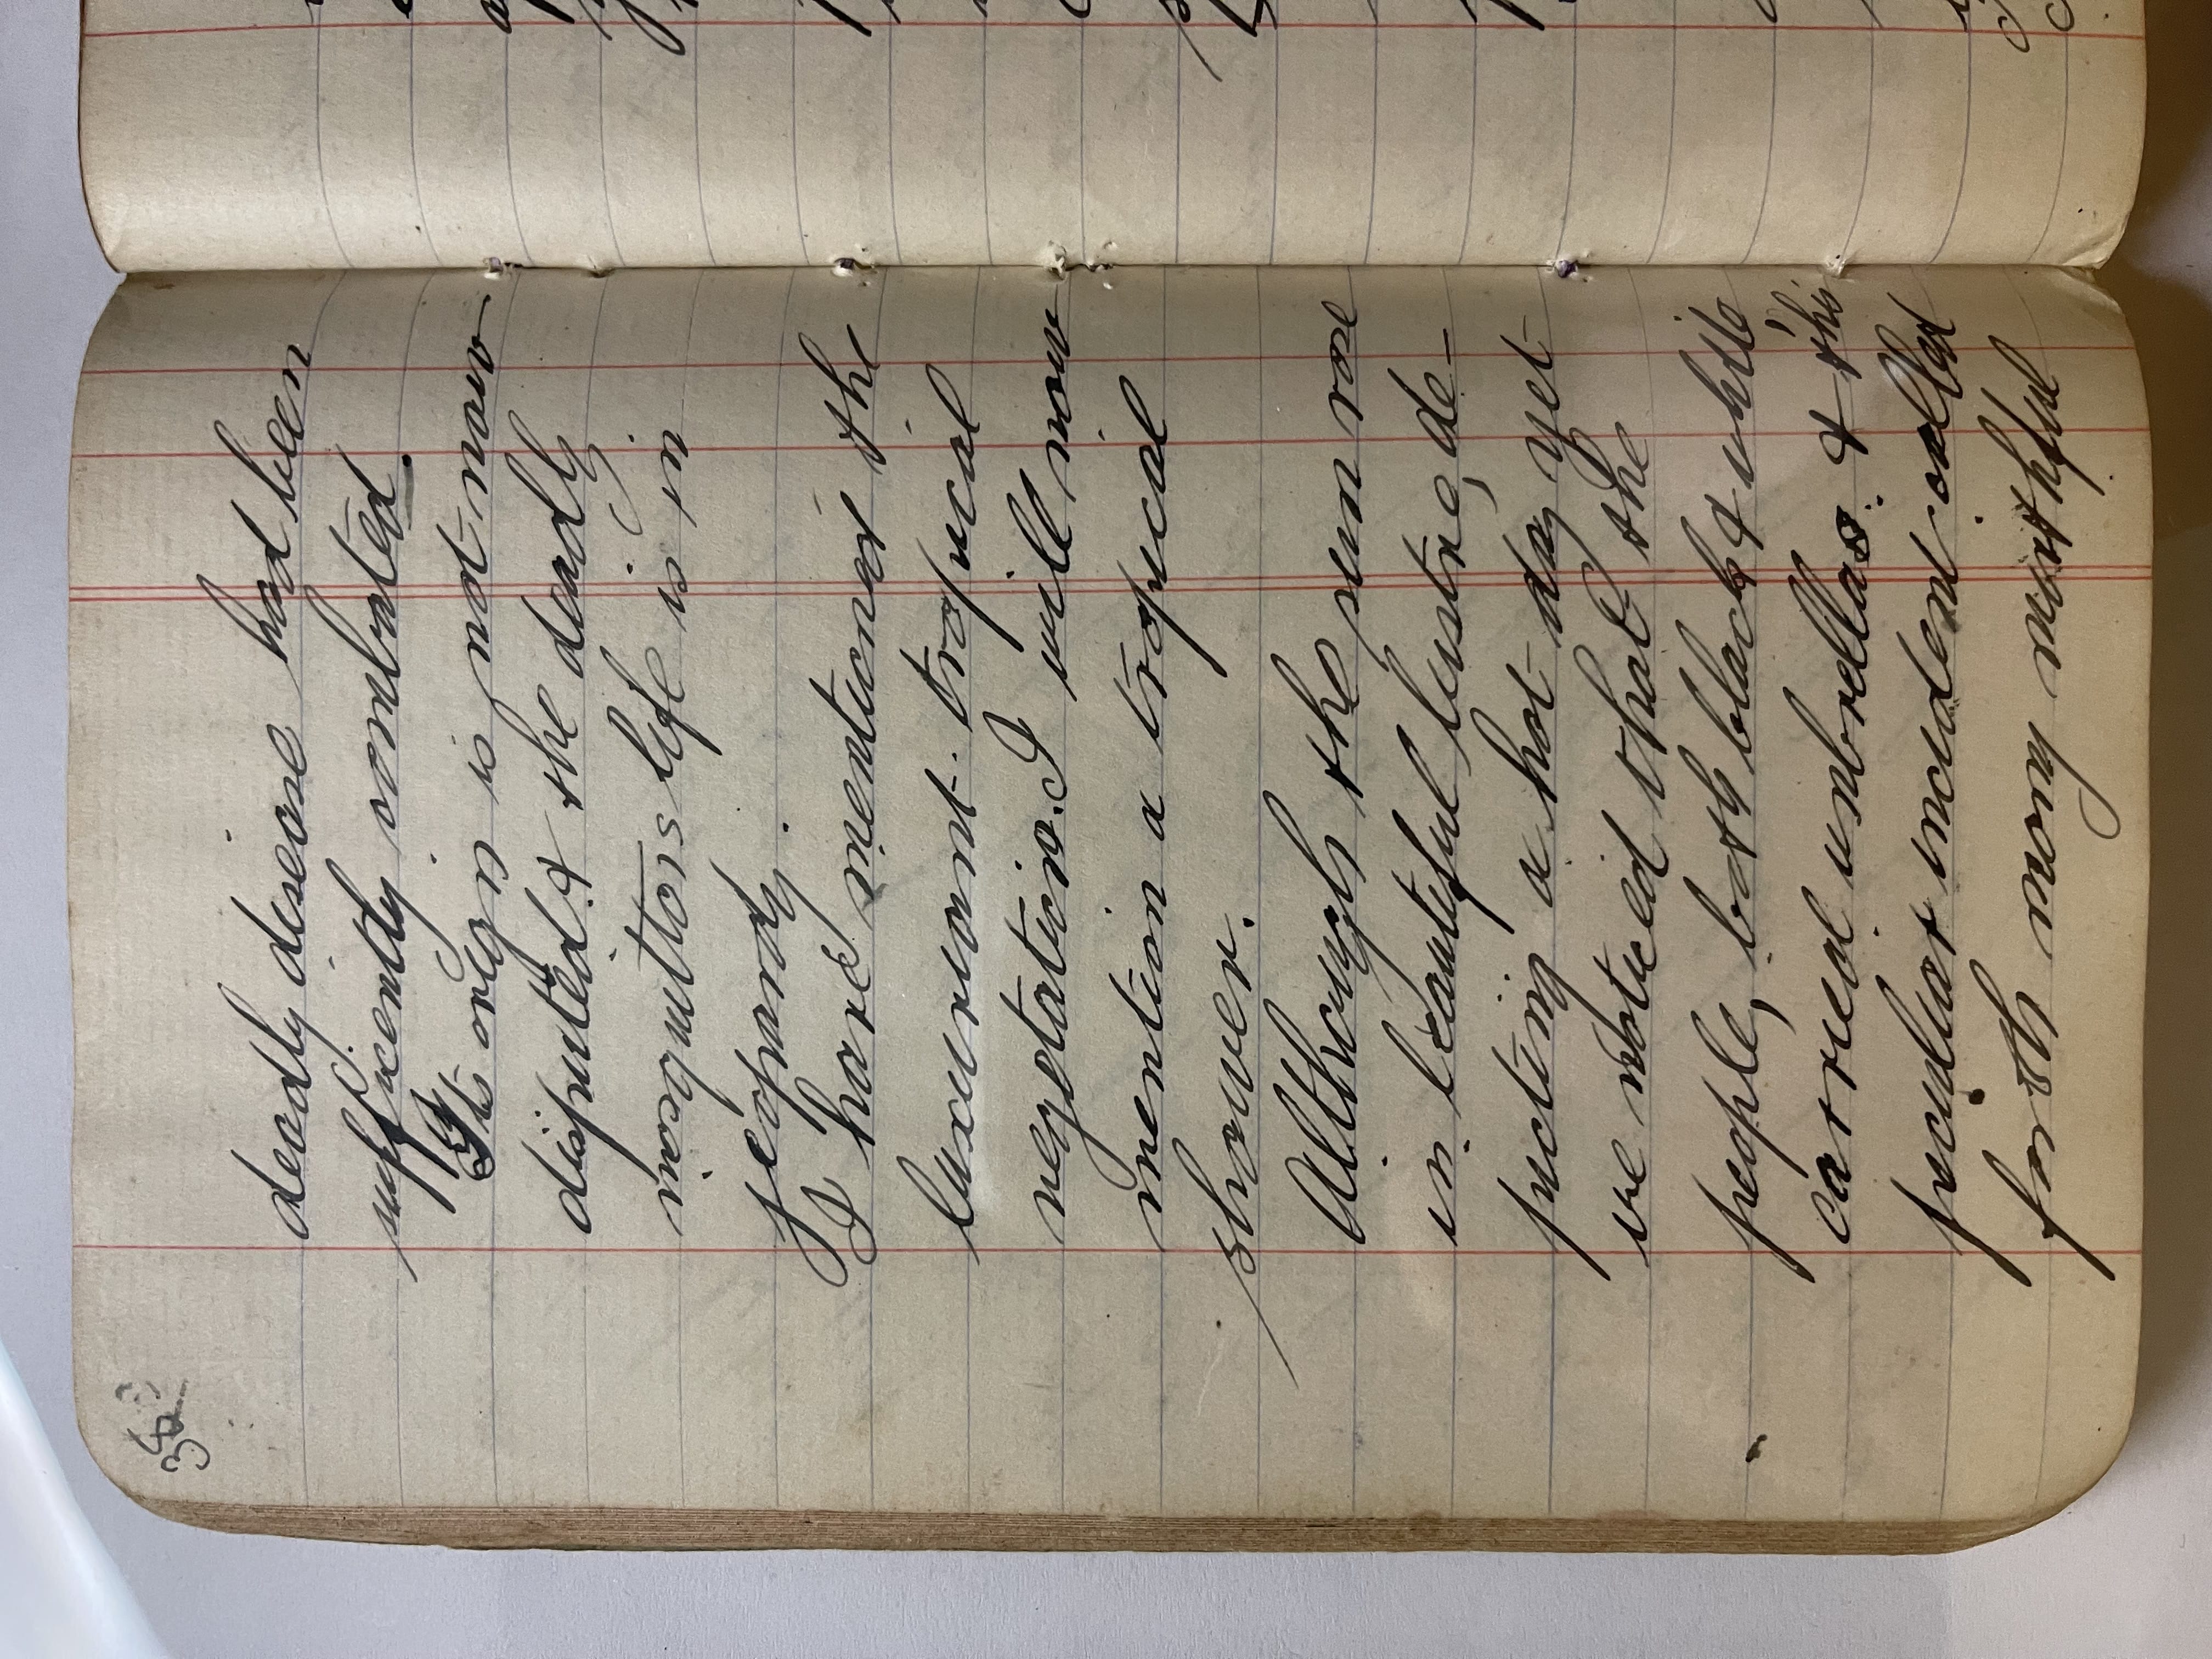 38
deadly disease had been
sufficently combated.
Its origin is not now
disputed. & the deadly
mosquittois life is in
jeopardy.
I have mentioned the
luxuriant. tropical
vegetation. I will now
mention a tropical
shower.
Although the sun rose
in beautiful lustre, de-
picting a hot day yet
we noticed that the
people, both black & white,
carried unbrellas. & this
peculiar incident called
forth many mirthful